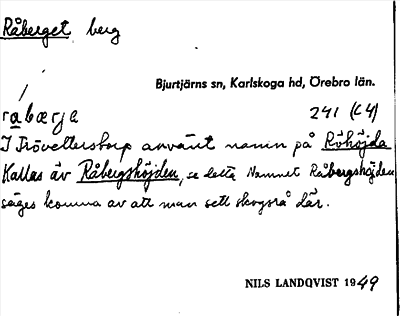 Råberget berg
Bjurtjärns sn, Karlskoga hd, Örebro län.
råbærja 241 (C4)
I Trövettersborp använt namn på Råhöjda
Kallas äv Råbergshöjden, se detta Namnet Råbergshöjden
säges komma av att man sett skogsrå där.
NILS LANDQVIST 1949